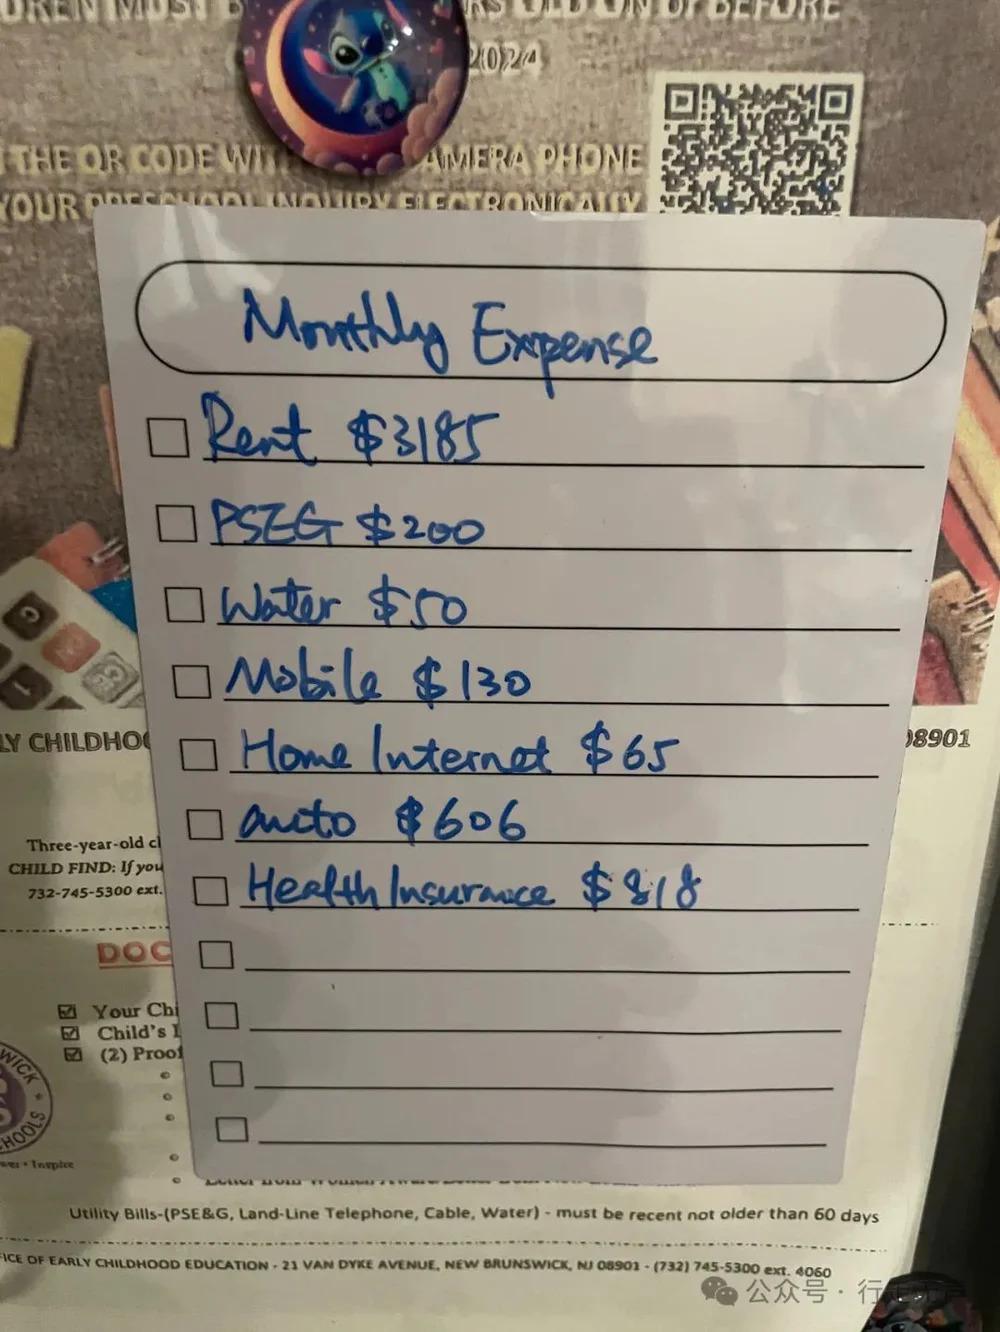 2024
THE QR CODE WIT AMERA PHONE
YOUR PRESCHOOL INQUIRY ELECTRONICALLY
Monthly Expense
Rent $3185
PSEG $200
Water $50
Mobile $130
Home Internet $65
auto $606
Health Insurance $818
LY CHILDHO
08901
Three-year-old cl
CHILD FIND: If you
732-745-5300 ext.
DOC
Your Chi
Child's
(2) Proof
Utility Bills-(PSE&G, Land-Line Telephone, Cable, Water) - must be recent not older than 60 days
ICE OF EARLY CHILDHOOD EDUCATION - 21 VAN DYKE AVENUE, NEW BRUNSWICK, NJ 08901 - (732) 745-5300 ext. 4060
公众号 · 行